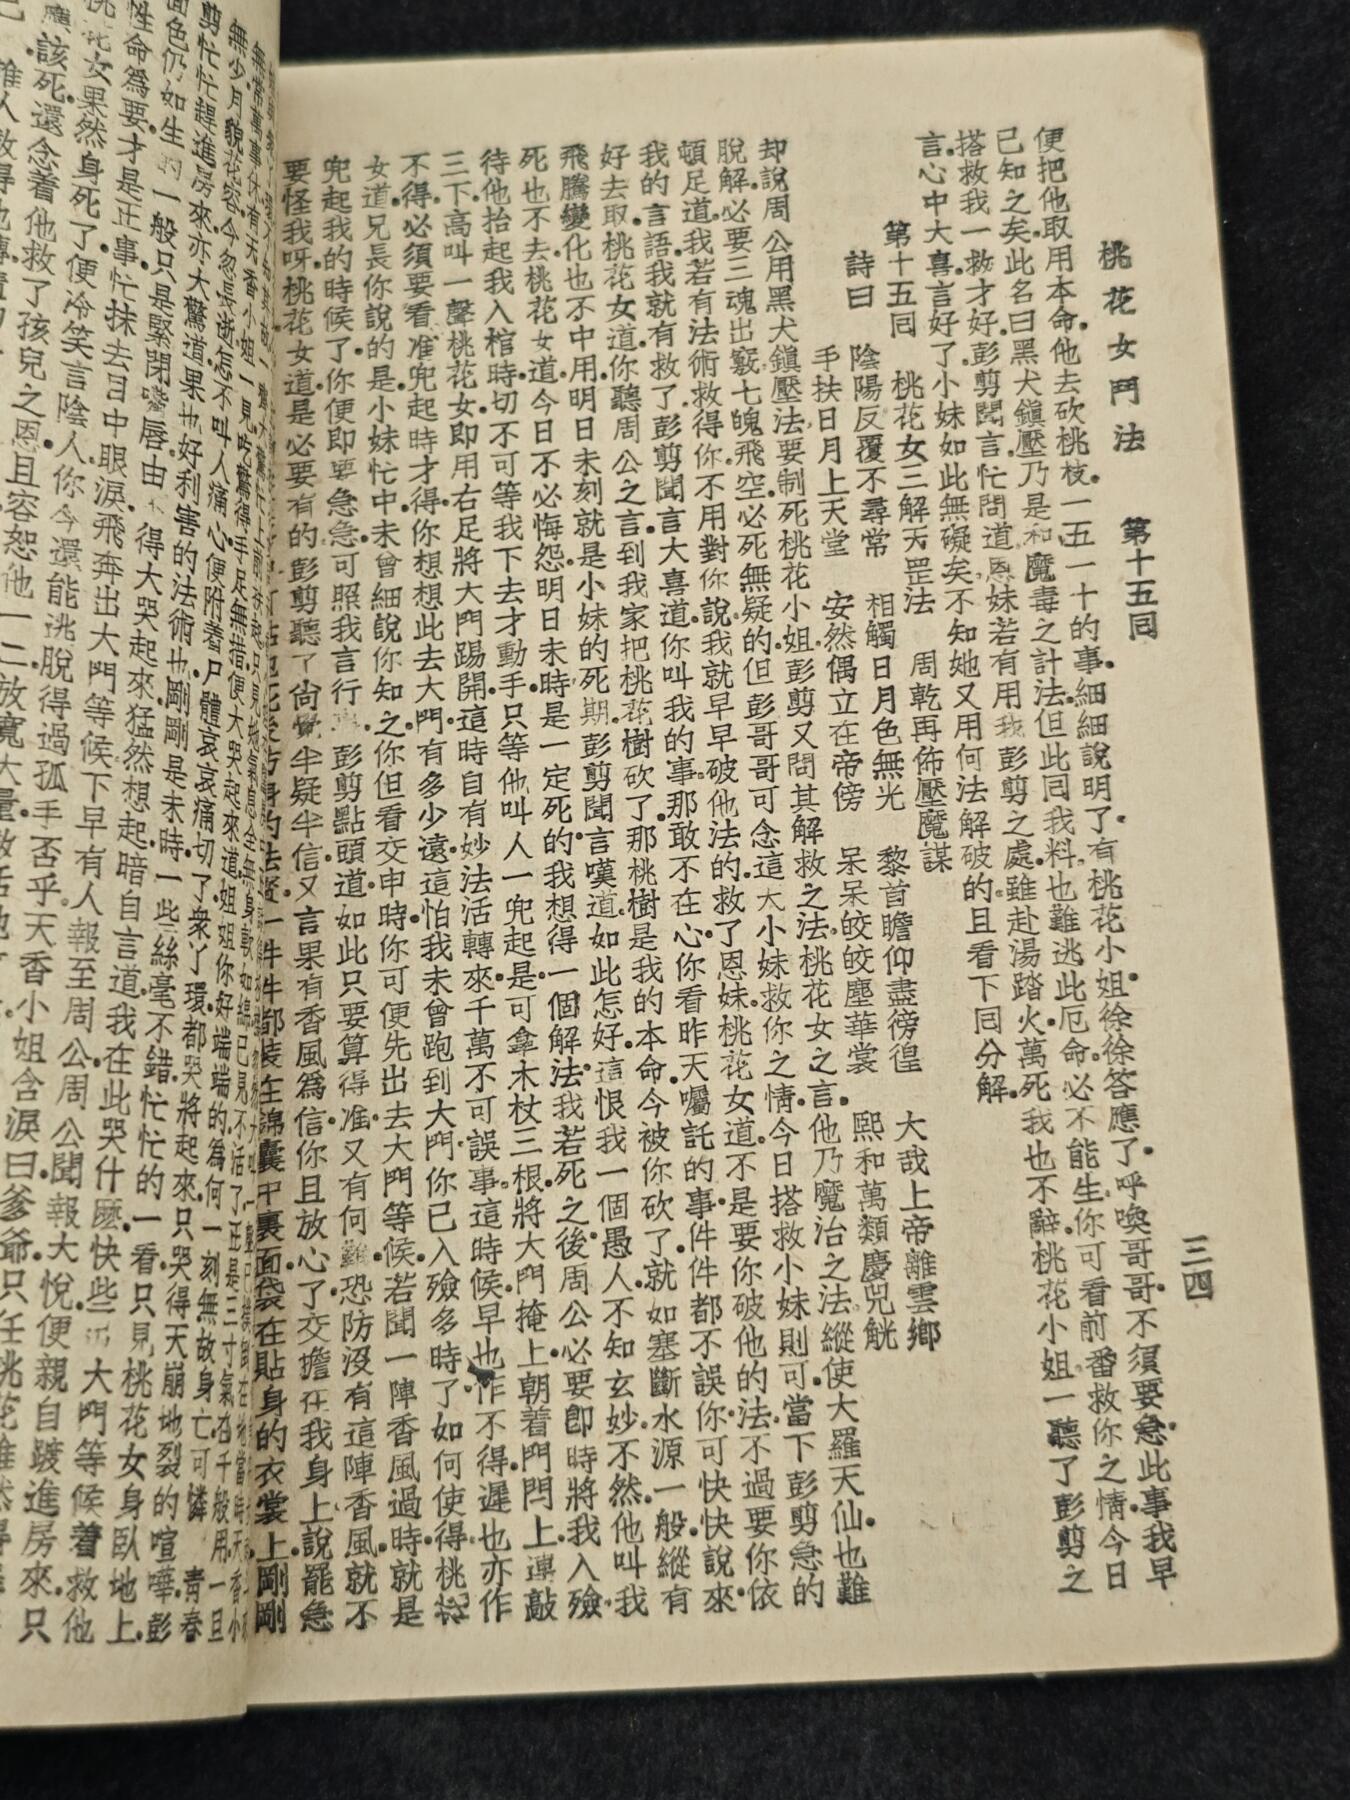 桃花女鬥法　第十五囘　三四
便把他取用本命他去砍桃枝一五一十的事細細說明了有桃花小姐徐徐答應了呼喚哥哥不須要急此事我早
已知之矣此名曰黑犬鎭壓乃是和魔毒之計法但此囘我料也難逃此厄命必不能生你可看前番救你之情今日
搭救我一救才好彭剪聞言忙問道恩妹若有用我彭剪之處雖赴湯踏火萬死我也不辭桃花小姐一聽了彭剪之
言心中大喜言好了小妹如此無礙矣不知她又用何法解破的且看下囘分解
第十五囘　桃花女三解天罡法　周乾再佈壓魔謀
詩曰　陰陽反覆不尋常　相觸日月色無光　黎首瞻仰盡徬徨　大哉上帝離雲鄉
手扶日月上天堂　安然偶立在帝傍　呆呆皎皎塵華裳　熙和萬類慶兕觥
却說周公用黑犬鎭壓法要制死桃花小姐彭剪又問其解救之法桃花女之言他乃魔治之法縱使大羅天仙也難
脫解必要三魂出竅七魄飛空必死無疑的但彭哥哥可念這大小妹救你之情今日搭救小妹則可當下彭剪急的
頓足道我若有法術救得你不用對你說我就早早破他法的救了恩妹桃花女道不是要你破他的法不過要你依
我的言語我就有救了彭剪聞言大喜道你叫我的事那敢不在心你看昨天囑託的事件件都不誤你可快快說來
好去取桃花女道你聽周公之言到我家把桃花樹砍了那桃樹是我的本命今被你砍了就如塞斷水源一般縱有
飛騰變化也不中用明日未刻就是小妹的死期彭剪聞言嘆道如此怎好這恨我一個愚人不知玄妙不然他叫我
死也不去桃花女道今日不必悔怨明日未時是一定死的我想得一個解法我若死之後周公必要卽時將我入殮
待他抬起我入棺時切不可等我下去才動手只等他叫人一兜起是可拿木杖三根將大門掩上朝着門閂上連敲
三下高叫一聲桃花女卽用右足將大門踢開這時自有妙法活轉來千萬不可誤事這時候早也作不得遲也亦作
不得必須要看准兜起時才得你想想此去大門有多少遠這怕我未曾跑到大門你已入殮多時了如何使得桃花
女道兄長你說的是小妹忙中未曾細說你知之你但看交申時你可便先出去大門等候若聞一陣香風過時就是
兜起我的時候了你便卽要急急可照我言行事彭剪點頭道如此只要算得准又有何難恐防沒有這陣香風就不
要怪我呀桃花女道是必要有的彭剪聽了尙覺半疑半信又言果有香風爲信你且放心了交擔在我身上說罷急
一件件都裝在錦囊中裏面袋在貼身的衣裳上剛剛
無常萬事休有天香小姐一見吃驚得手足無措便大哭起來道姐姐你好端端的為何一刻無故身亡可憐　青春
無少月貌花容今忽長逝怎不叫人痛心便附着尸體哀哀痛切了衆丫環都哭將起來只哭得天崩地裂的喧嘩彭
剪忙忙趕進房來亦大驚道果也好利害的法術也剛剛是未時一些絲毫不錯忙忙的一看只見桃花女身臥地上
面色仍如生的一般只是緊閉嘴唇由不得大哭起來猛然想起暗自言道我在此哭什麼快些出大門等候着救他
性命爲要才是正事忙抹去目中眼淚飛奔出大門等候下早有人報至周公周公聞報大悅便親自踱進房來只
桃花女果然身死了便冷笑言陰人你今還能逃脫得過孤手否乎天香小姐含淚曰爹爺只任桃花
應該死還念着他救了孩兒之恩且容恕他一二放寬大量